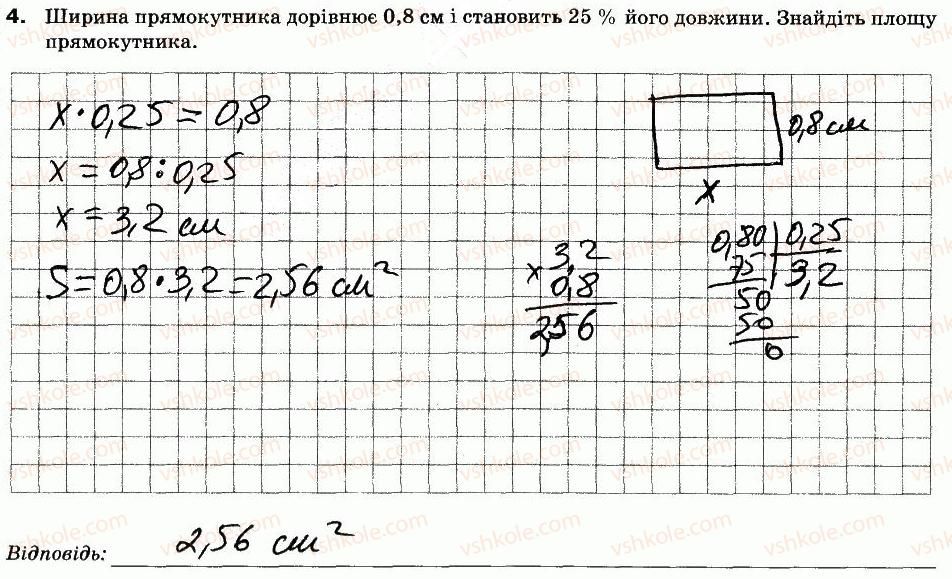 4. Ширина прямокутника дорівнює 0,8 см і становить 25 % його довжини. Знайдіть площу
прямокутника.
x · 0,25 = 0,8
x = 0,8 : 0,25
x = 3,2 см
S = 0,8 · 3,2 = 2,56 см²
0,8 см
x
3,2
× 0,8
2,56
0,80 | 0,25
75 | 3,2
50
50
0
Відповідь: 2,56 см²
vshkole.com